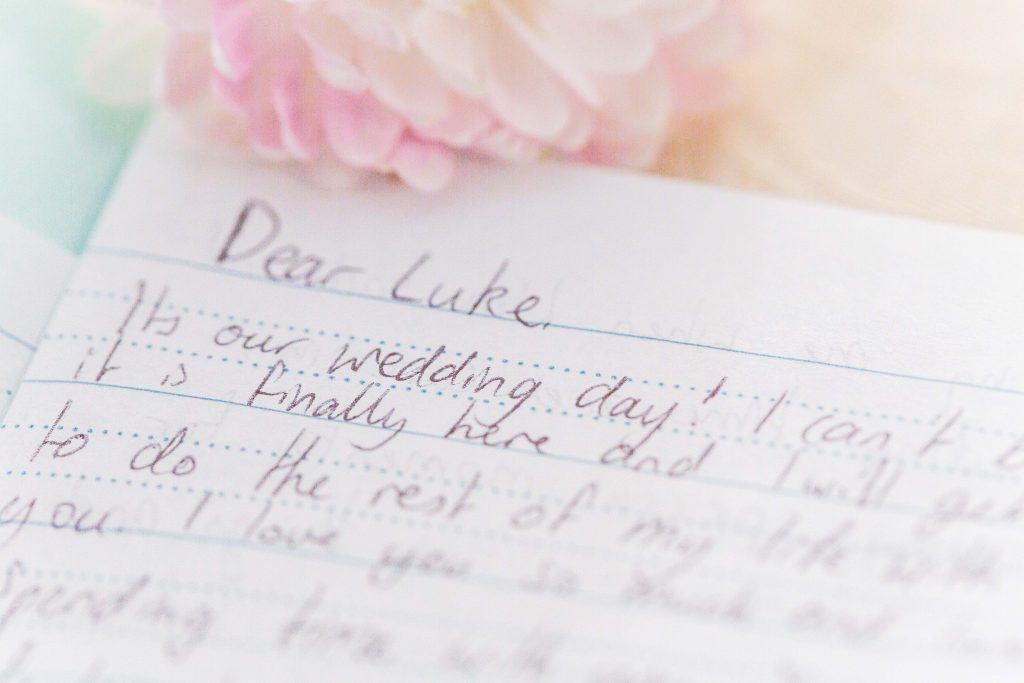 Dear Luke.
Its our wedding day! I can't
it is finally here and I will get
to do the rest of my life with
you. I love you so much and
spending time with